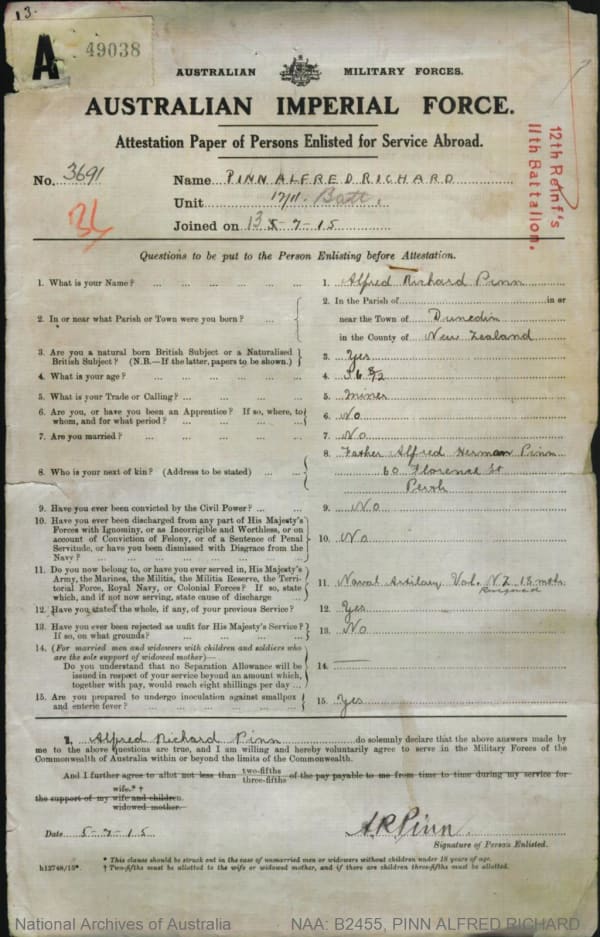 13.
A 49038
AUSTRALIAN MILITARY FORCES.
AUSTRALIAN IMPERIAL FORCE.
Attestation Paper of Persons Enlisted for Service Abroad.
12th Reinf's
11th Battalion.
No. 3691
Name PINN ALFRED RICHARD
Unit 12/11. Batt.
Joined on 5-7-15
Questions to be put to the Person Enlisting before Attestation.
1. What is your Name? ... 1. Alfred Richard Pinn
2. In or near what Parish or Town were you born? ... 2. In the Parish of in or
near the Town of Dunedin
in the County of New Zealand
3. Are you a natural born British Subject or a Naturalised
British Subject? (N.B.—If the latter, papers to be shown.) 3. Yes
4. What is your age? ... 4. 36
5. What is your Trade or Calling? ... 5. Miner
6. Are you, or have you been an Apprentice? If so, where, to
whom, and for what period? ... 6. No
7. Are you married? ... 7. No
8. Who is your next of kin? (Address to be stated) ... 8. Father Alfred Herman Pinn
60 Florence St
Perth
9. Have you ever been convicted by the Civil Power? ... 9. No
10. Have you ever been discharged from any part of His Majesty's
Forces with Ignominy, or as Incorrigible and Worthless, or on
account of Conviction of Felony, or of a Sentence of Penal
Servitude, or have you been dismissed with Disgrace from the
Navy? ... 10. No
11. Do you now belong to, or have you ever served in, His Majesty's
Army, the Marines, the Militia, the Militia Reserve, the Terri-
torial Force, Royal Navy, or Colonial Forces? If so, state
which, and if not now serving, state cause of discharge 11. Naval Artilary Vol. NZ 18 mths.
Resigned
12. Have you stated the whole, if any, of your previous Service? 12. Yes
13. Have you ever been rejected as unfit for His Majesty's Service?
If so, on what grounds? ... 13. No
14. (For married men and widowers with children and soldiers who
are the sole support of widowed mother)—
Do you understand that no Separation Allowance will be
issued in respect of your service beyond an amount which,
together with pay, would reach eight shillings per day ... 14. —
15. Are you prepared to undergo inoculation against smallpox
and enteric fever? ... 15. Yes
I, Alfred Richard Pinn do solemnly declare that the above answers made by
me to the above questions are true, and I am willing and hereby voluntarily agree to serve in the Military Forces of the
Commonwealth of Australia within or beyond the limits of the Commonwealth.
And I further agree to allot not less than two-fifths three-fifths of the pay payable to me from time to time during my service for
wife.* †
the support of my wife and children.
widowed mother.
Date 5-7-15 A R Pinn
Signature of Person Enlisted.
* This clause should be struck out in the case of unmarried men or widowers without children under 18 years of age.
h12748/15*. † Two-fifths must be allotted to the wife or widowed mother, and if there are children three-fifths must be allotted.
National Archives of Australia NAA: B2455, PINN ALFRED RICHARD